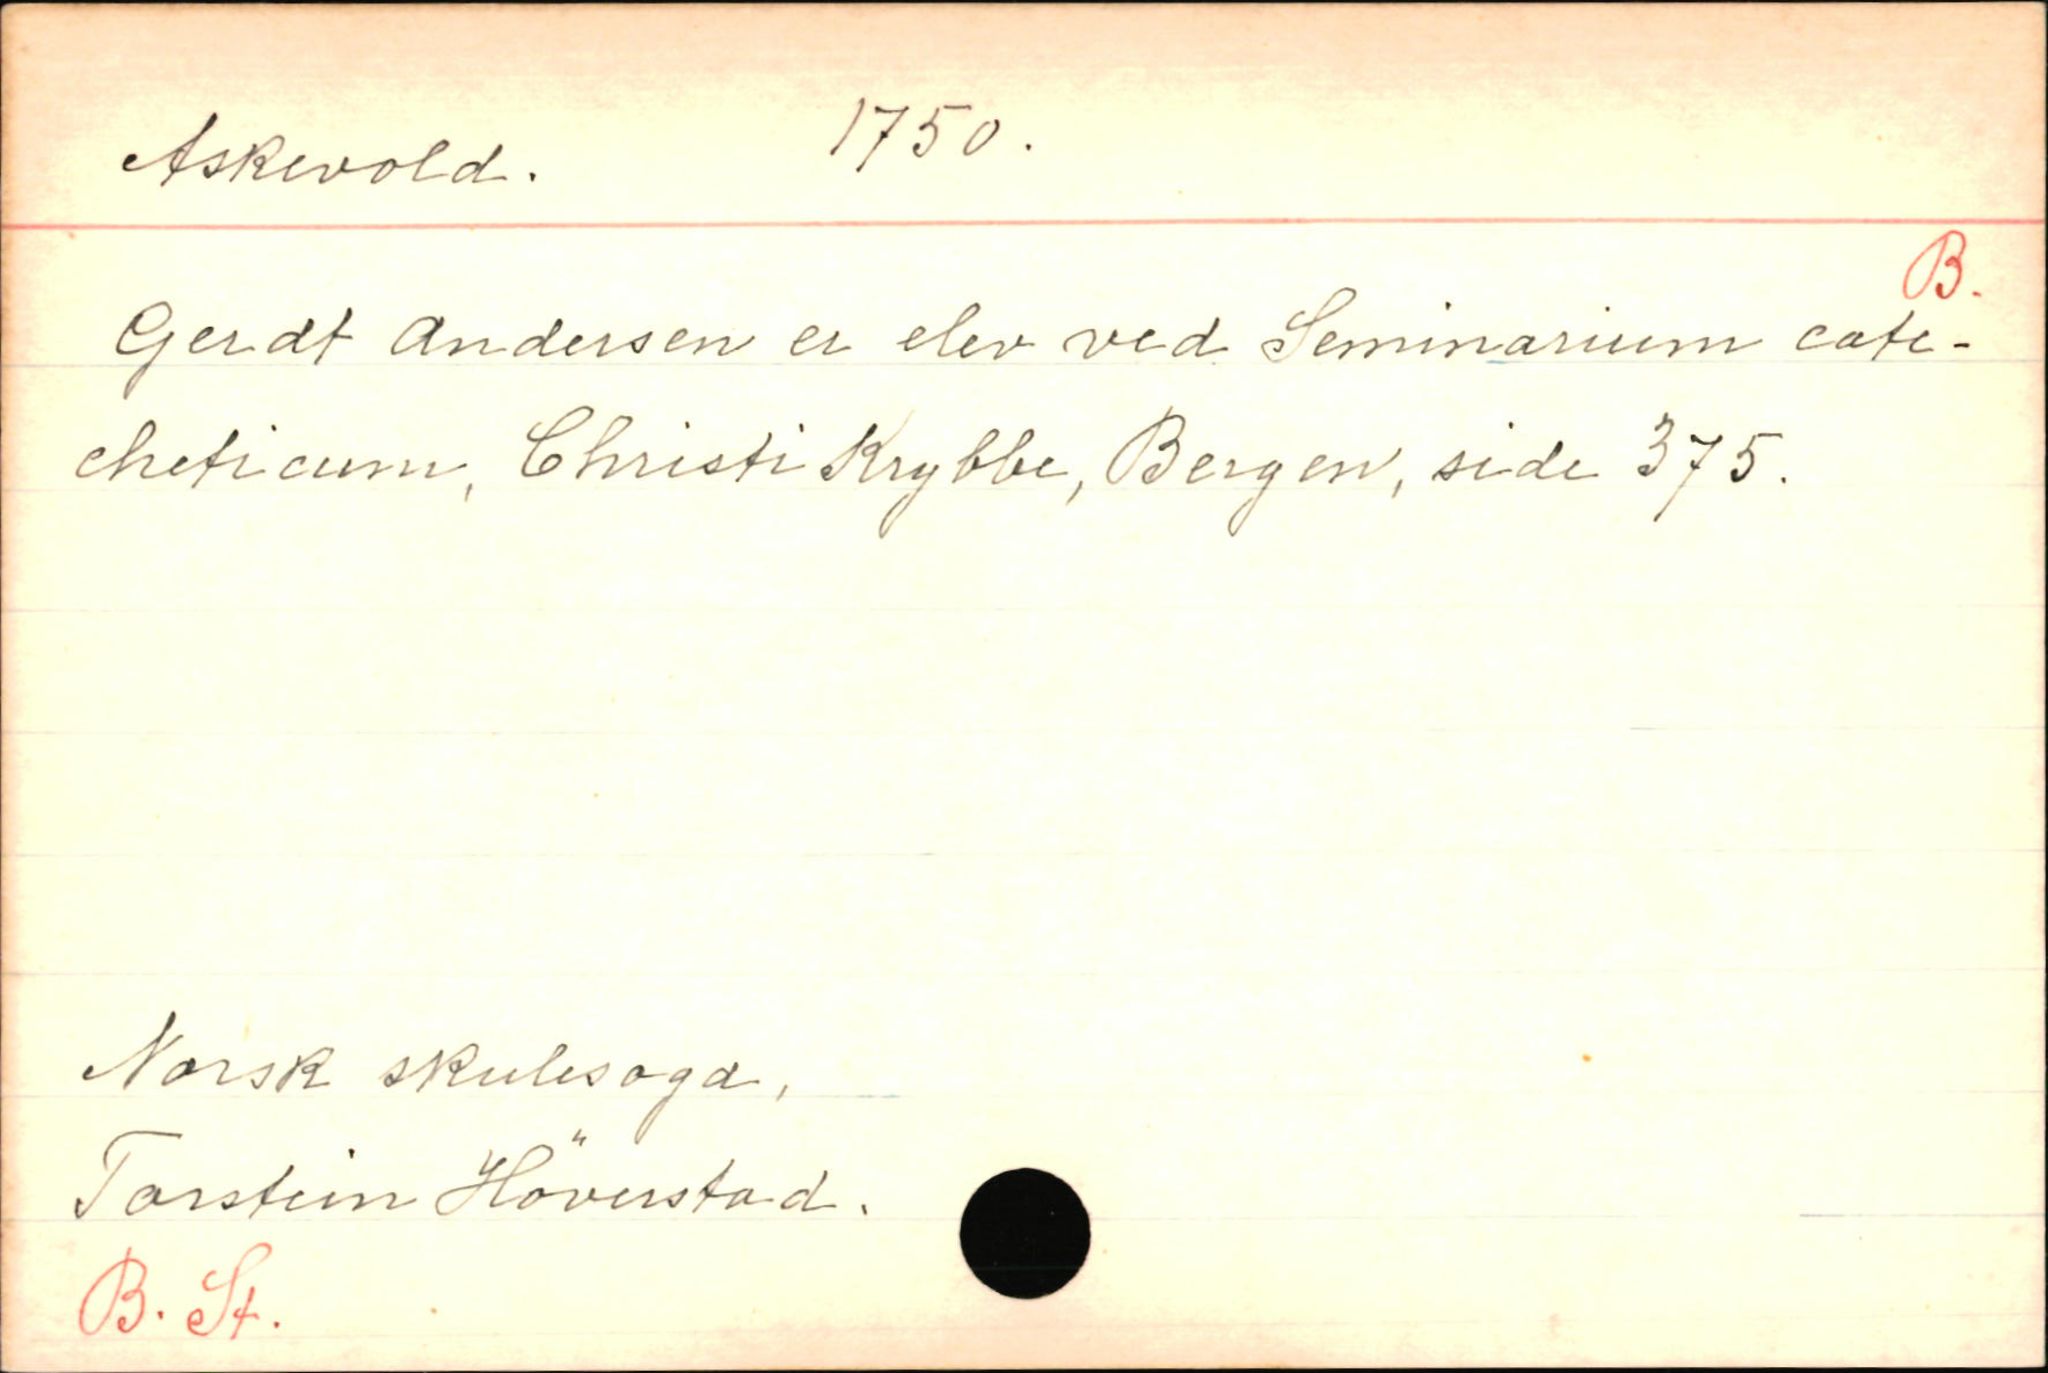 Askevold. 1750.
B.
Gerdt Andersen er elev ved Seminarium cate-
cheticum, Christi Krybbe, Bergen, side 375.
Norsk skulesoga,
Torstein Höverstad.
B. St.